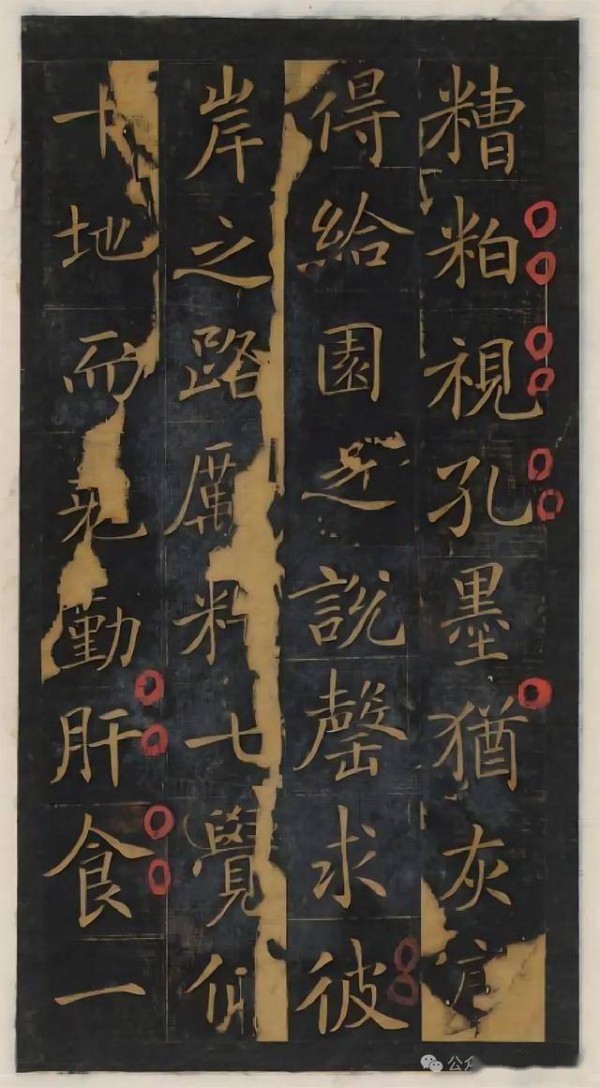 糟粕視孔墨猶灰
得給園之說罄求彼
岸之路厲七覺
十地而勤肝食一
公众